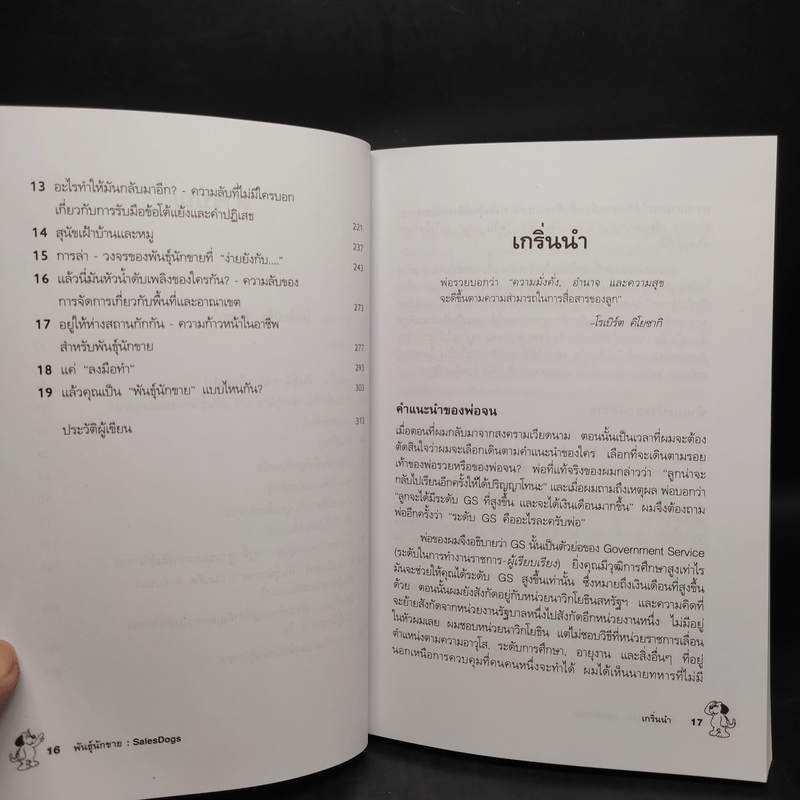 13 อะไรทำให้มันกลับมาอีก? - ความลับที่ไม่มีใครบอก
เกี่ยวกับการรับมือข้อโต้แย้งและคำปฏิเสธ 221
14 สุนัขเฝ้าบ้านและหมู 237
15 การล่า - วงจรของพันธุ์นักขายที่ "ง่ายยังกับ...." 243
16 แล้วนี่มันหัวน้ำดับเพลิงของใครกัน? - ความลับของ
การจัดการเกี่ยวกับพื้นที่และอาณาเขต 273
17 อยู่ให้ห่างสถานกักกัน - ความก้าวหน้าในอาชีพ
สำหรับพันธุ์นักขาย 277
18 แค่ "ลงมือทำ" 293
19 แล้วคุณเป็น "พันธุ์นักขาย" แบบไหนกัน? 303
ประวัติผู้เขียน 313
16 พันธุ์นักขาย : SalesDogs
เกริ่นนำ
พ่อรวยบอกว่า "ความมั่งคั่ง, อำนาจ และความสุข
จะดีขึ้นตามความสามารถในการสื่อสารของลูก"
-โรเบิร์ต คิโยซากิ
คำแนะนำของพ่อจน
เมื่อตอนที่ผมกลับมาจากสงครามเวียดนาม ตอนนั้นเป็นเวลาที่ผมจะต้อง
ตัดสินใจว่าผมจะเลือกเดินตามคำแนะนำของใคร เลือกที่จะเดินตามรอย
เท้าของพ่อรวยหรือของพ่อจน? พ่อที่แท้จริงของผมกล่าวว่า "ลูกน่าจะ
กลับไปเรียนอีกครั้งให้ได้ปริญญาโทนะ" และเมื่อผมถามถึงเหตุผล พ่อบอกว่า
"ลูกจะได้มีระดับ GS ที่สูงขึ้น และจะได้เงินเดือนมากขึ้น" ผมจึงต้องถาม
พ่ออีกครั้งว่า "ระดับ GS คืออะไรละครับพ่อ"
พ่อของผมจึงอธิบายว่า GS นั้นเป็นตัวย่อของ Government Service
(ระดับในการทำงานราชการ-ผู้เรียบเรียง) ยิ่งคุณมีวุฒิการศึกษาสูงเท่าไร
มันจะช่วยให้คุณได้ระดับ GS สูงขึ้นเท่านั้น ซึ่งหมายถึงเงินเดือนที่สูงขึ้น
ด้วย ตอนนั้นผมยังสังกัดอยู่กับหน่วยนาวิกโยธินสหรัฐฯ และความคิดที่
จะย้ายสังกัดจากหน่วยงานรัฐบาลหนึ่งไปสังกัดอีกหน่วยงานหนึ่ง ไม่มีอยู่
ในหัวผมเลย ผมชอบหน่วยนาวิกโยธิน แต่ไม่ชอบวิธีที่หน่วยราชการเลื่อน
ตำแหน่งตามความอาวุโส, ระดับการศึกษา, อายุงาน และสิ่งอื่นๆ ที่อยู่
นอกเหนือการควบคุมที่คนคนหนึ่งจะทำได้ ผมได้เห็นนายทหารที่ไม่มี
เกริ่นนำ 17